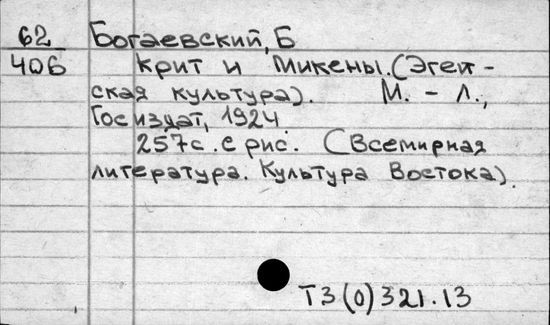 62 Богаевский, Б
406 Крит и Микены. (Эгей-
ская культура). М. - Л.,
Госиздат, 1924
257с. с рис. (Всемирная
литература. Культура Востока).
Т3(0)321.13